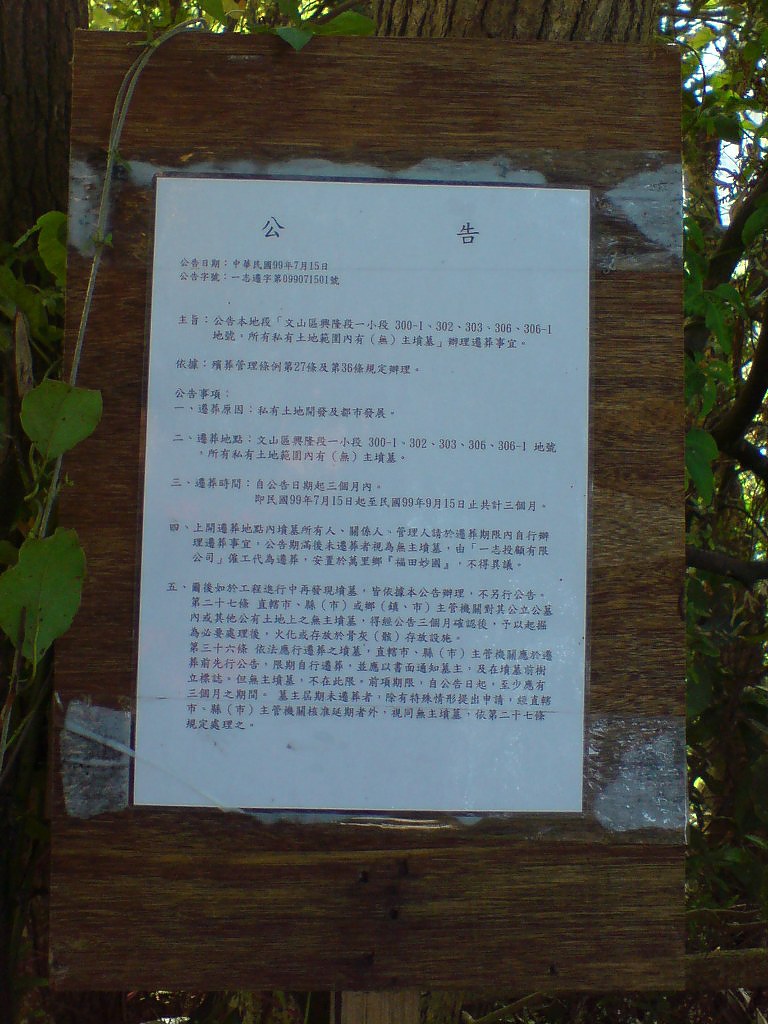 公告
公告日期：中華民國99年7月15日
公告字號：一志遷字第099071501號
主旨：公告本地段「文山區興隆段一小段 300-1、302、303、306、306-1
地號，所有私有土地範圍內有（無）主墳墓」辦理遷葬事宜。
依據：殯葬管理條例第27條及第36條規定辦理。
公告事項：
一、遷葬原因：私有土地開發及都市發展。
二、遷葬地點：文山區興隆段一小段 300-1、302、303、306、306-1 地號
，所有私有土地範圍內有（無）主墳墓。
三、遷葬時間：自公告日期起三個月內。
即民國99年7月15日起至民國99年9月15日止共計三個月。
四、上開遷葬地點內墳墓所有人、關係人、管理人請於遷葬期限內自行辦
理遷葬事宜，公告期滿後未遷葬者視為無主墳墓，由「一志投顧有限
公司」僱工代為遷葬，安置於萬里鄉『福田妙國』，不得異議。
五、爾後如於工程進行中再發現墳墓，皆依據本公告辦理，不另行公告。
第二十七條 直轄市、縣（市）或鄉（鎮、市）主管機關對其公立公墓
內或其他公有土地上之無主墳墓，得經公告三個月確認後，予以起掘
為必要處理後，火化或存放於骨灰（骸）存放設施。
第三十六條 依法應行遷葬之墳墓，直轄市、縣（市）主管機關應於遷
葬前先行公告，限期自行遷葬，並應以書面通知墓主，及在墳墓前樹
立標誌。但無主墳墓，不在此限。前項期限，自公告日起，至少應有
三個月之期間。 墓主屆期未遷葬者，除有特殊情形提出申請，經直轄
市、縣（市）主管機關核准延期者外，視同無主墳墓，依第二十七條
規定處理之。